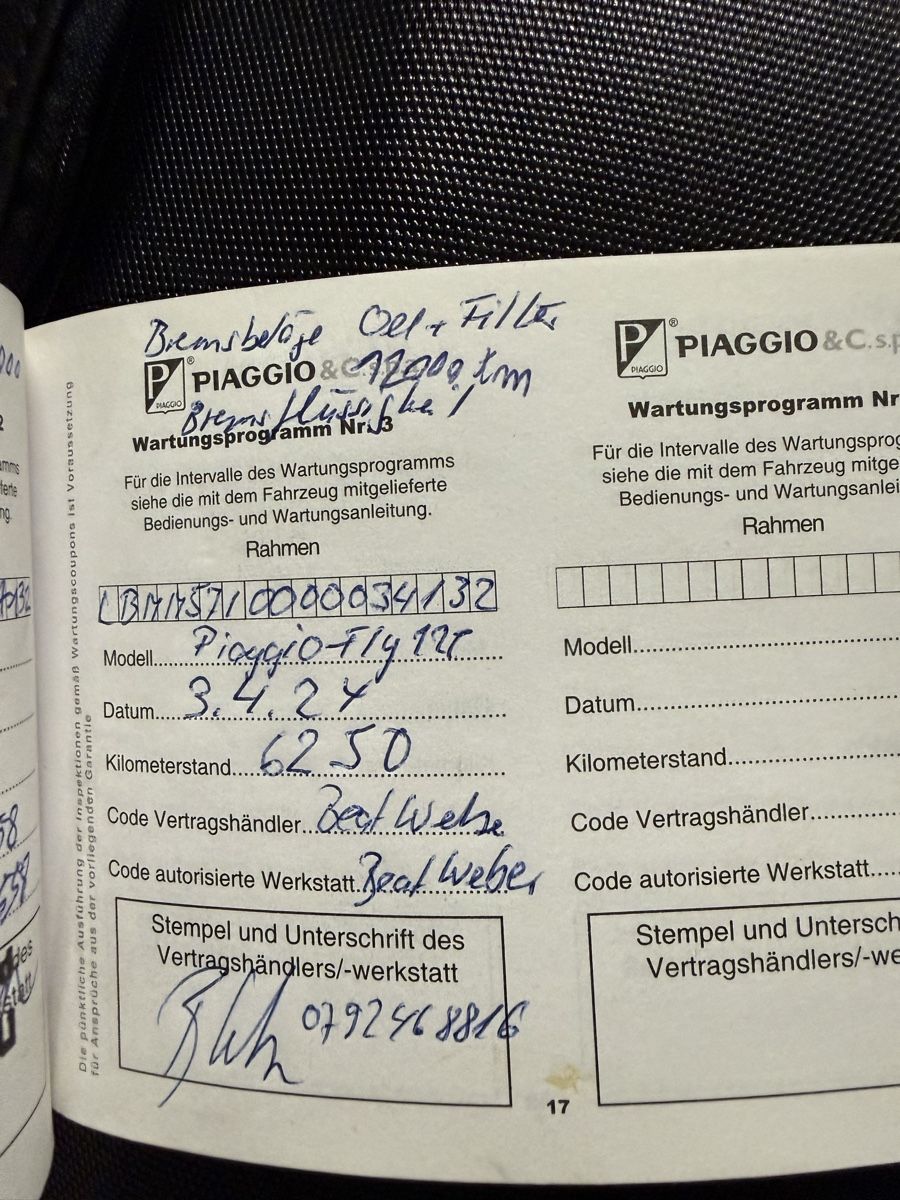 Bremsbeläge Oel + Filter
PIAGGIO & C. s.p.a. 12000 km
PIAGGIO
Bremsflüssigkei
Wartungsprogramm Nr. 3
Für die Intervalle des Wartungsprogramms
siehe die mit dem Fahrzeug mitgelieferte
Bedienungs- und Wartungsanleitung.
Rahmen
LBMM5710000034132
Modell Piaggio-Fly 125
Datum 3.4.24
Kilometerstand 6250
Code Vertragshändler Beat Weber
Code autorisierte Werkstatt Beat Weber
Stempel und Unterschrift des
Vertragshändlers/-werkstatt
0792468816
17
Die pünktliche Ausführung der Inspektionen gemäß Wartungscoupons ist Voraussetzung
für Ansprüche aus der vorliegenden Garantie
PIAGGIO & C. s.p
PIAGGIO
Wartungsprogramm Nr
Für die Intervalle des Wartungsprog
siehe die mit dem Fahrzeug mitgelie
Bedienungs- und Wartungsanlei
Rahmen
Modell
Datum
Kilometerstand
Code Vertragshändler
Code autorisierte Werkstatt
Stempel und Unterschr
Vertragshändlers/-we